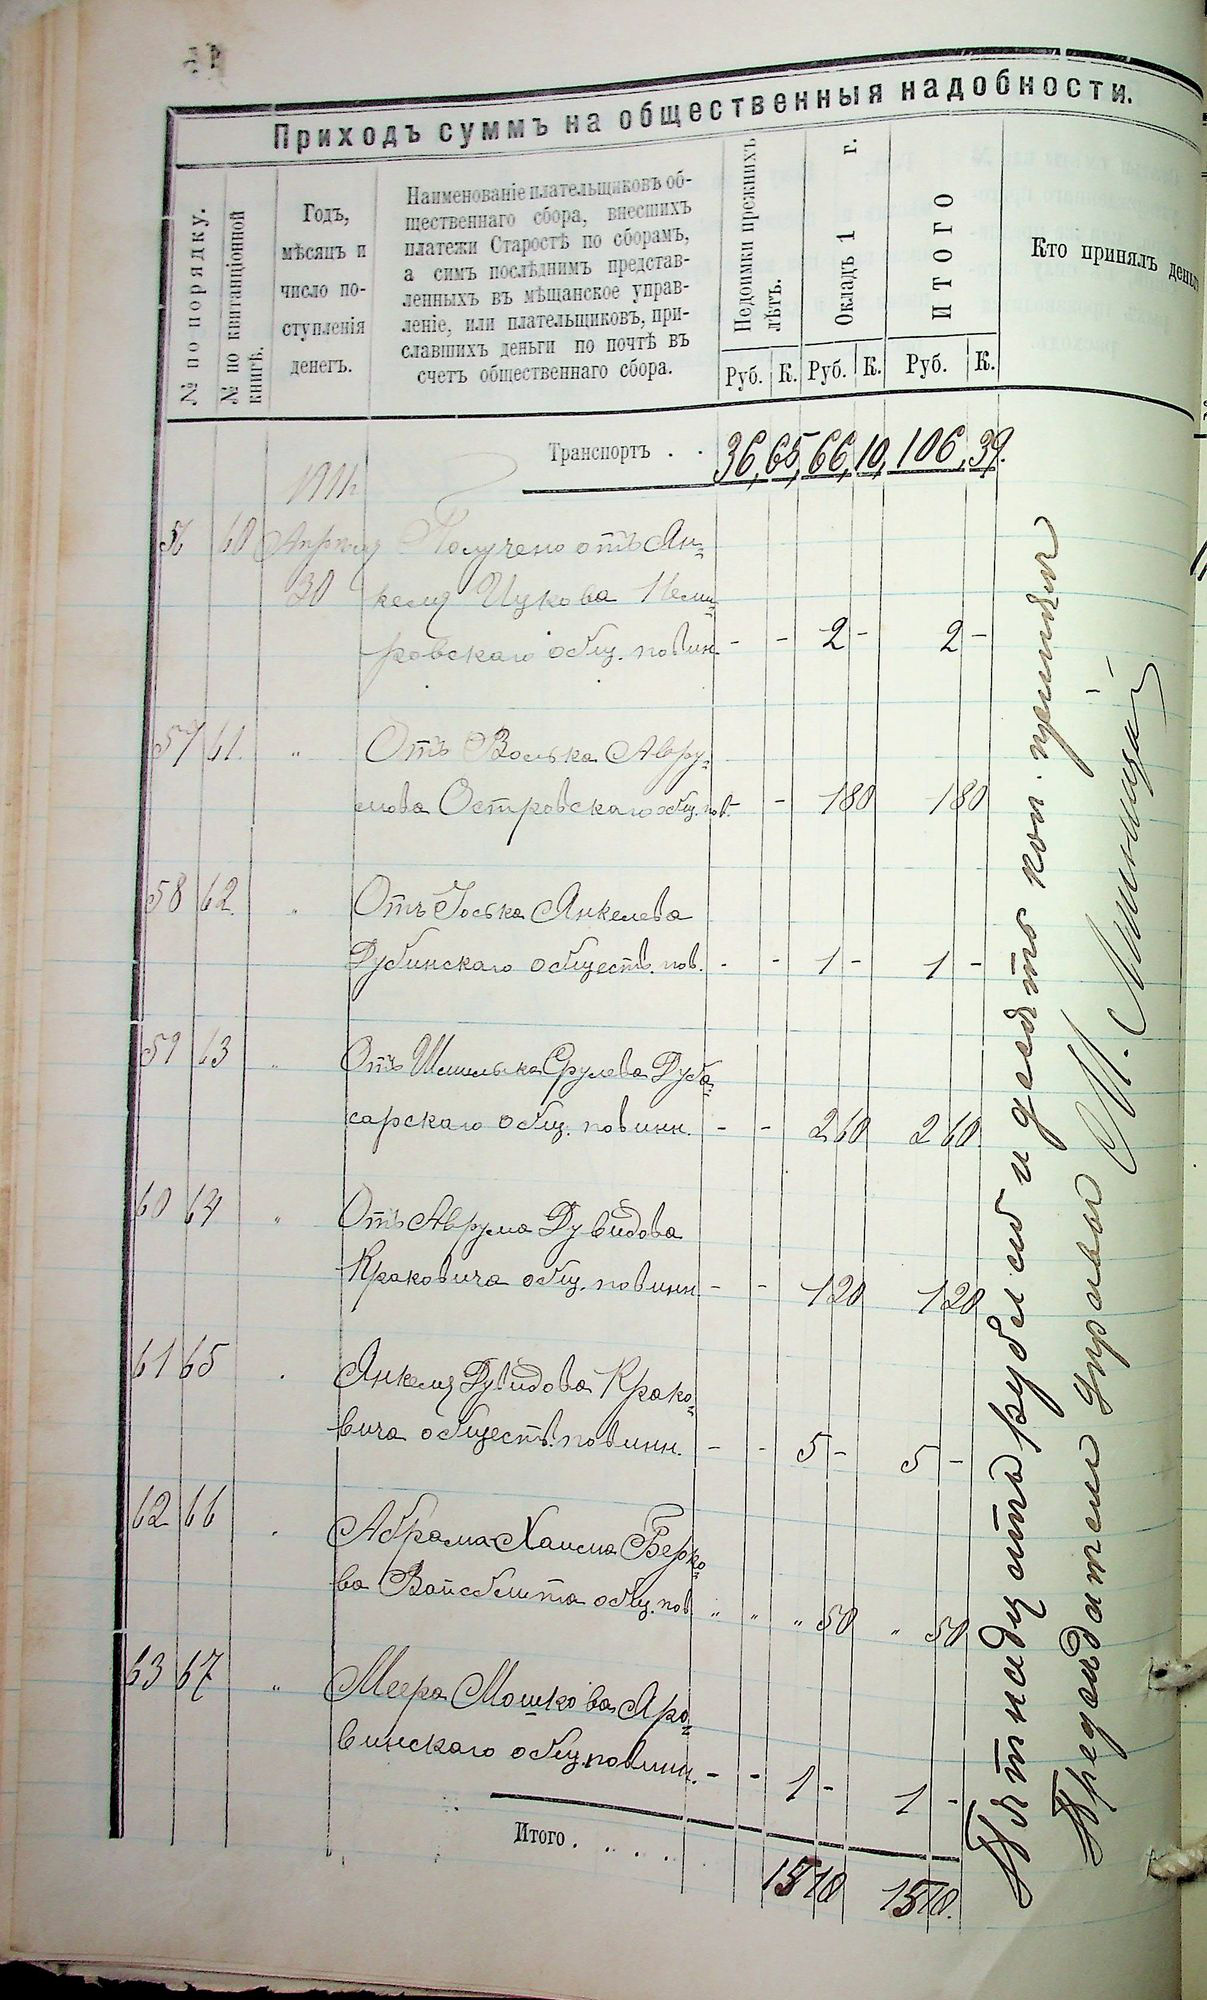 Приходъ суммъ на общественныя надобности.
№ по порядку.
№ по квитанціонной книгѣ.
Годъ,
мѣсяцъ и
число по-
ступленія
денегъ.
Наименованіе плательщиковъ об-
щественнаго сбора, внесшихъ
платежи Старостѣ по сборамъ,
а симъ послѣднимъ представ-
ленныхъ въ мѣщанское управ-
леніе, или плательщиковъ, при-
славшихъ деньги по почтѣ въ
счетъ общественнаго сбора.
Недоимки прежнихъ лѣтъ.
Окладъ 1 г.
ИТОГО
Кто принялъ деньги
Руб. К. Руб. К. Руб. К.
Транспортъ . . 36, 65, 66, 10, 106, 39.
56 60 Апрѣля Получено отъ Ян=
30 келя Ицкова Неми=
ровскаго общ. повин. - - 2 - 2 -
57 61. " Отъ Волька Авру=
мова Островскаго общ. пов. - 1 80 1 80
58 62. " Отъ Іоська Янкелева
Дубинскаго обществ. пов. - - 1 - 1 -
59 63 " Отъ Шмилька Срулева Дуба=
сарскаго общ. повинн. - - 2 60 2 60
60 64 " Отъ Аврума Дувидова
Краковича общ. повинн - - 1 20 1 20
61 65 . Янкеля Дувидова Крако=
вича обществ. повинн. - - 5 - 5 -
62 66 . Абрама Хаима Берко=
ва Вайсблита общ. пов " " " 50 " 50
63 67 " Меера Мошкова Яро=
винскаго общ. повинн. - - 1 - 1 -
Итого . . . . . 15 10 15 10.
Пятнадцать рублей и десять коп. принялъ
Предсѣдатель Управы